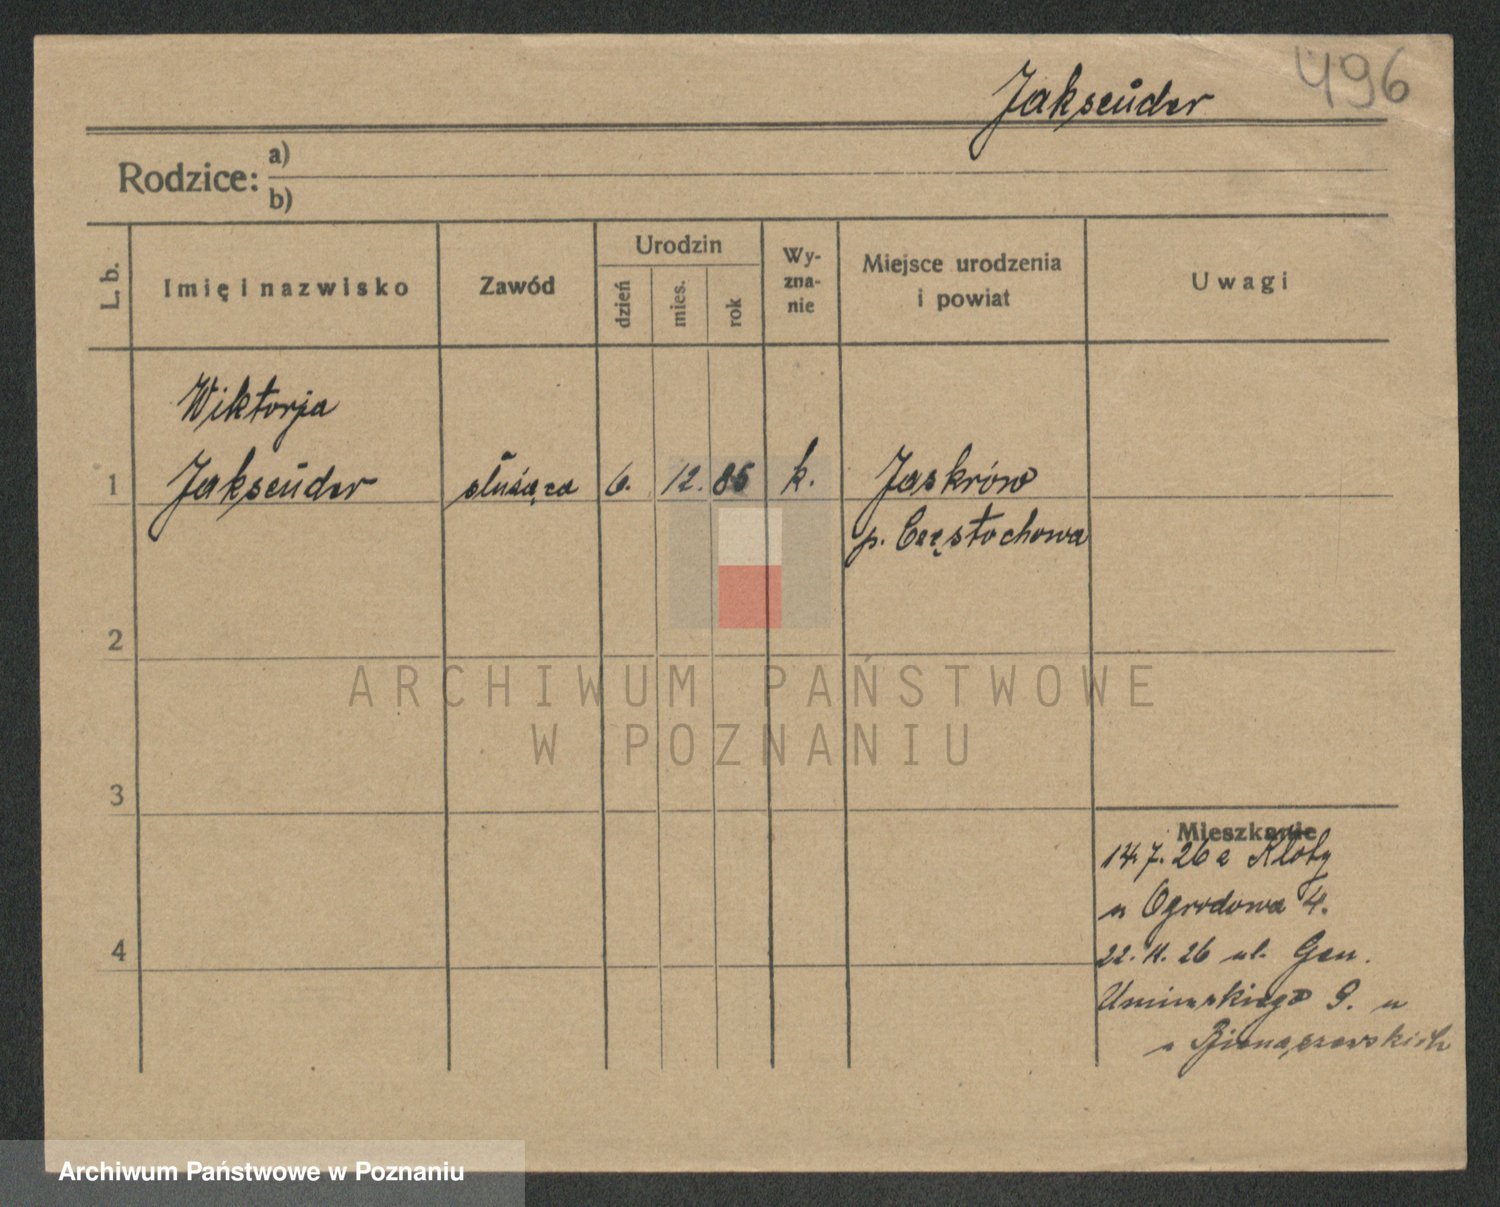 496
Jakseuder
Rodzice: a)
b)
L. b.
Imię i nazwisko
Zawód
Urodzin
dzień
mies.
rok
Wy-
zna-
nie
Miejsce urodzenia
i powiat
Uwagi
Wiktorja
1 Jakseuder służąca 6. 12. 85 k. Jaskrów
p. Częstochowa
2
3
4
Mieszkanie
14.7.26 z Kłoby
Ogrodowa 4.
22.11.26 ul. Gen.
Umińskiego 9. u
ARCHIWUM PAŃSTWOWE
W POZNANIU
Archiwum Państwowe w Poznaniu